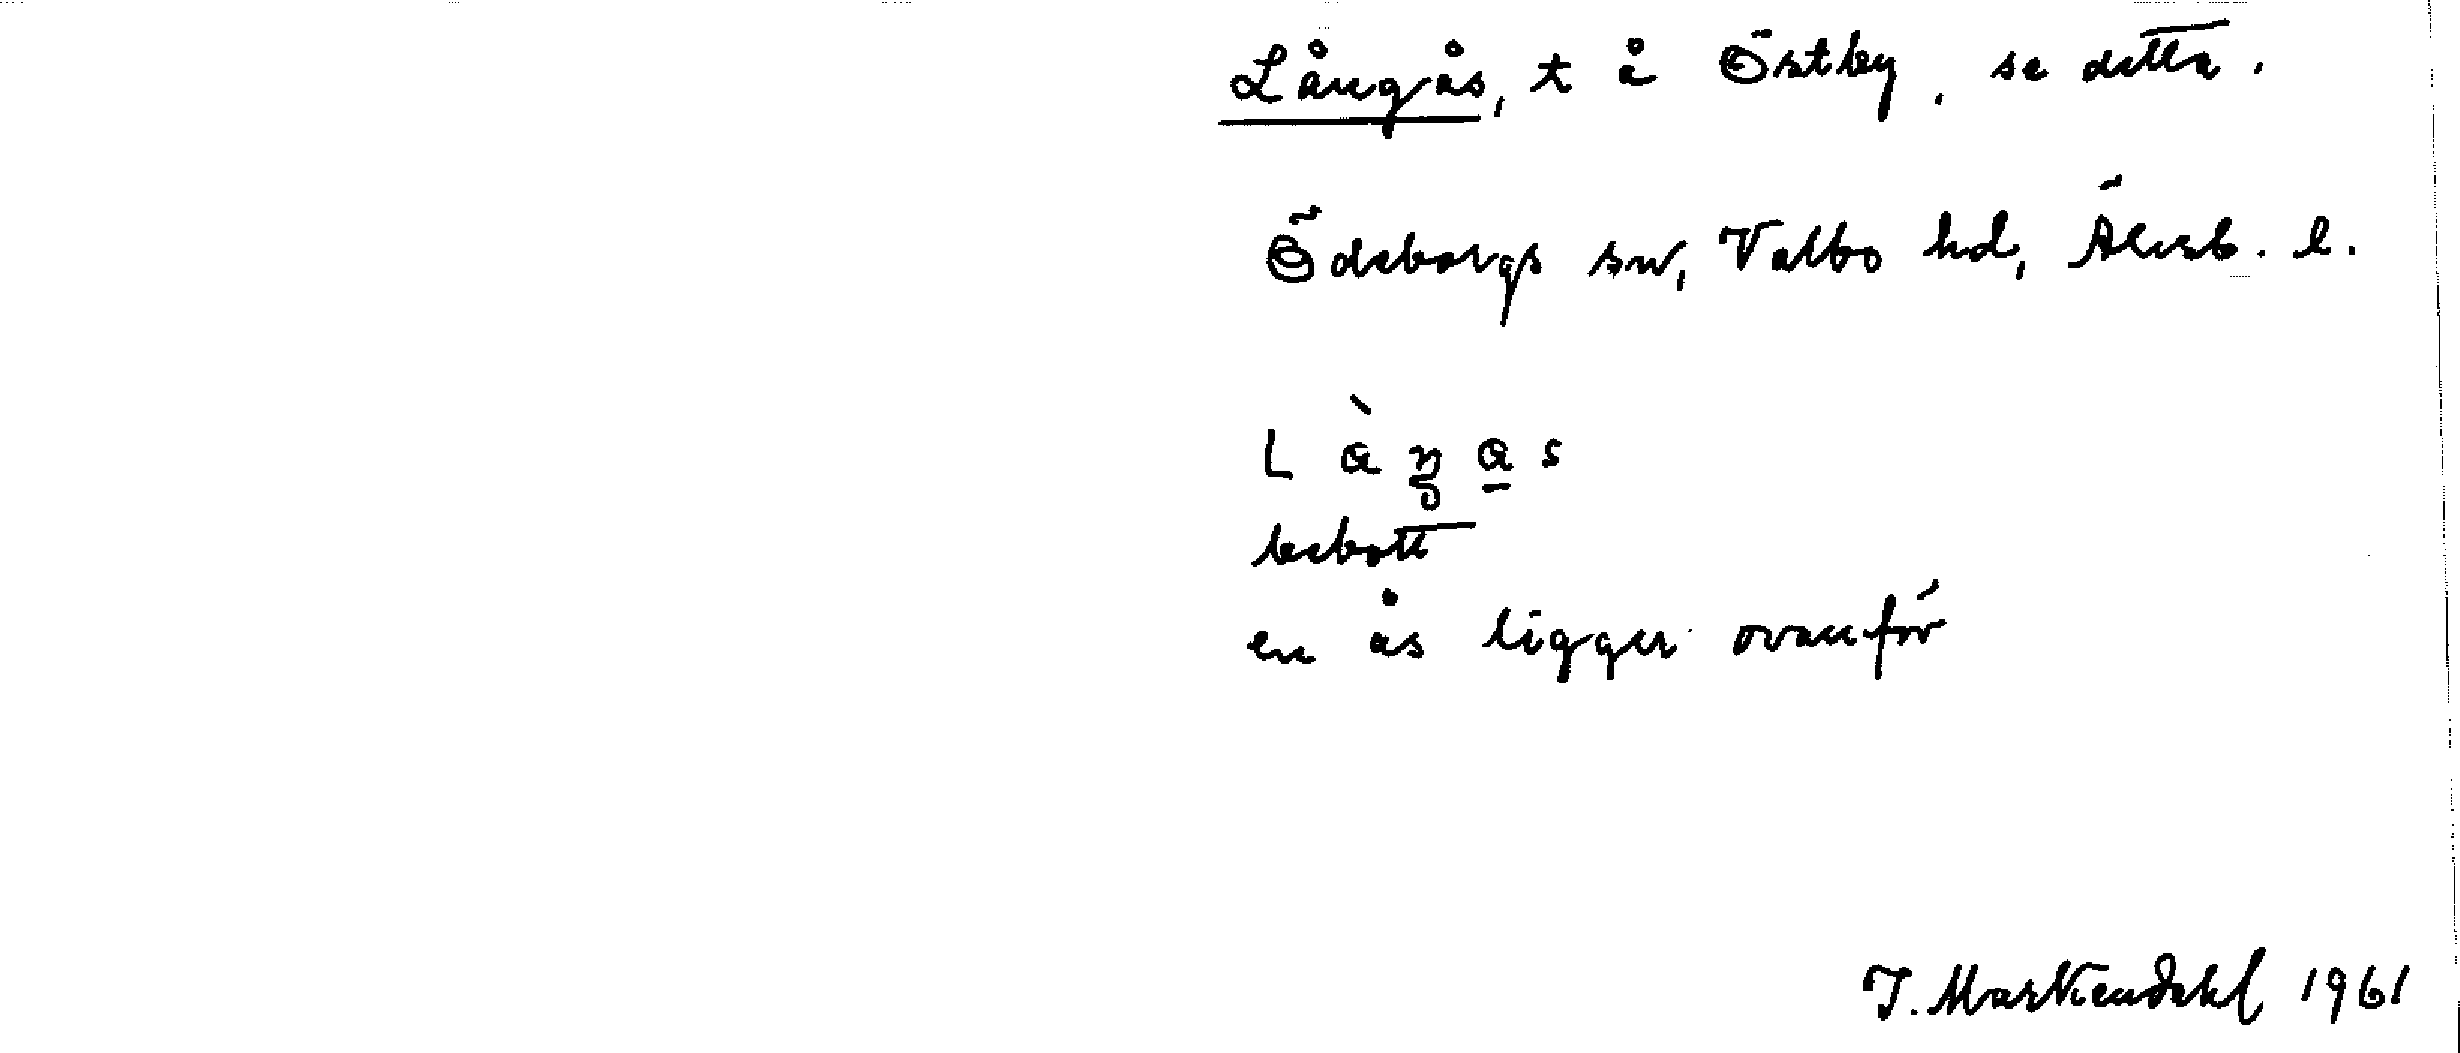 Långås, t å Östby, se detta.
Ödeborgs sn, Valbo hd, Älvsb. l.
bebott
en ås ligger ovanför
J. Markendahl 1961